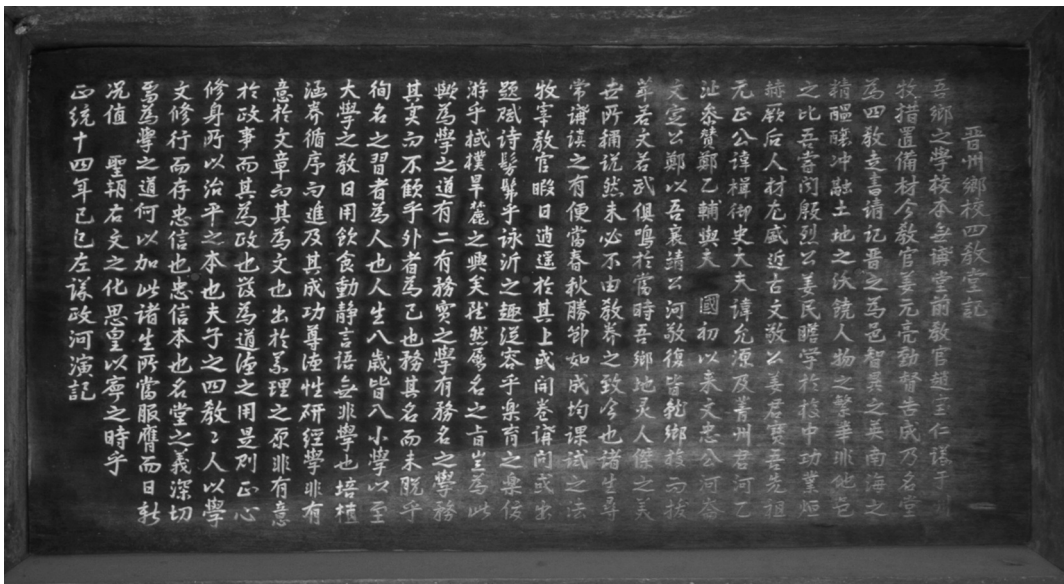 晋州鄉校四教堂記
吾鄉之學校本無講堂前教官趙三仁謀于判
牧措置備材今教官姜元亮勤督告成乃名堂
為四教走書请記晋之為邑智異之英南海之
精醞釀冲融土地之沃饒人物之繁華非他邑
之比吾嘗闻殷烈公姜民瞻学於校中功業烜
赫厥后人材尤盛近古文敬公姜君寶吾先祖
元正公諱楫御史大夫諱允源及菁州君河乙
沚叅贊鄭乙輔與夫 國初以来文忠公河崙
文定公鄭以吾襄靖公河敬復皆鄉校而拔
萃若文若武俱鳴於當時吾鄉地灵人傑之美
世所稱说然未必不由教养之致今也諸生尋
常講讀之有便當春秋勝節如成均課試之法
牧宰教官暇日逍遥於其上或開卷講问或出
題赋诗髣髴乎詠沂之趣従容乎楽育之楽傍
游乎棫撲旱麓之興矣雖然名之㫖豈為此
歟為學之道有二有務实之學有務名之學務
其实而不願乎外者為己也務其名而未脱乎
徇名之習者為人也人生八歳皆入小學以至
大學之教日用飲食動静言語無非學也培植
涵养循序而進及其成功尊德性研經學非有
意於文章而其為文也出於理之原非有意
於政事而其為政也發為道德之用是则正心
修身所以治平之本也夫子之四教〻人以學
文修行而存忠信也忠信本也名堂之義深切
焉為學之道何以加此諸生所當服膺而日新
况值 聖朝右文之化思皇以寧之時乎
正統十四年己巳左議政河演記